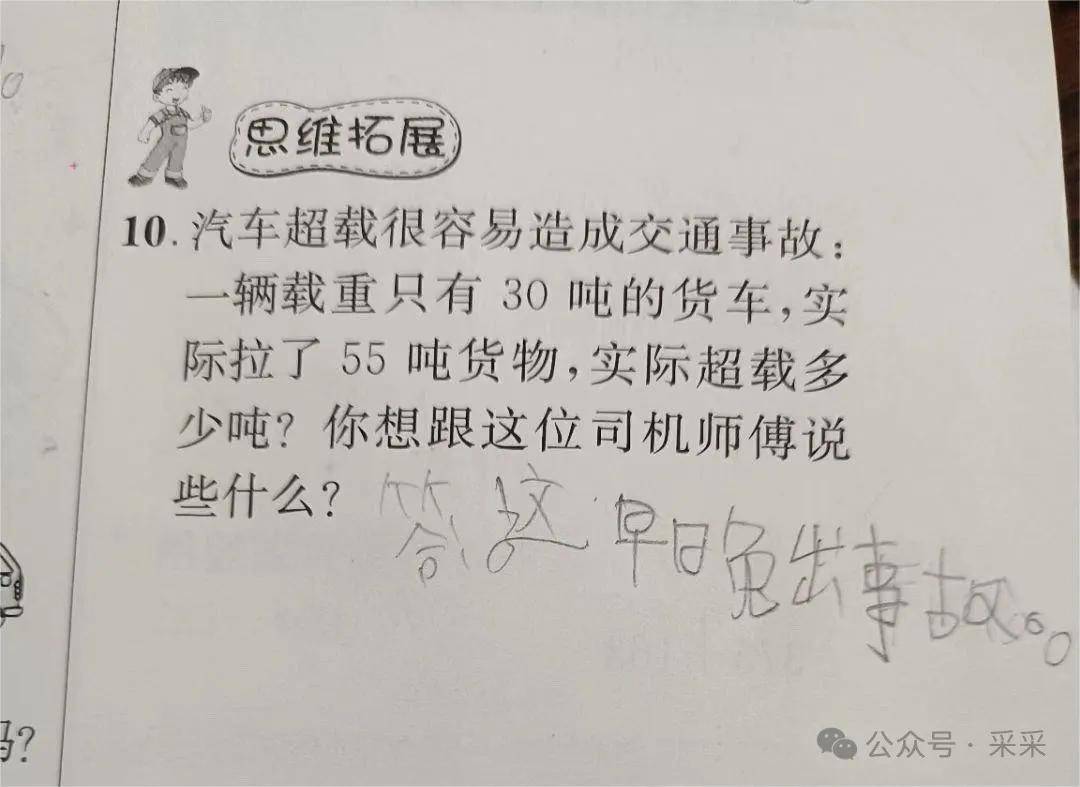 思维拓展
10.汽车超载很容易造成交通事故：
一辆载重只有 30 吨的货车，实
际拉了 55 吨货物，实际超载多
少吨？你想跟这位司机师傅说
些什么？答这早日晚出事故。
吗？
公众号·采采